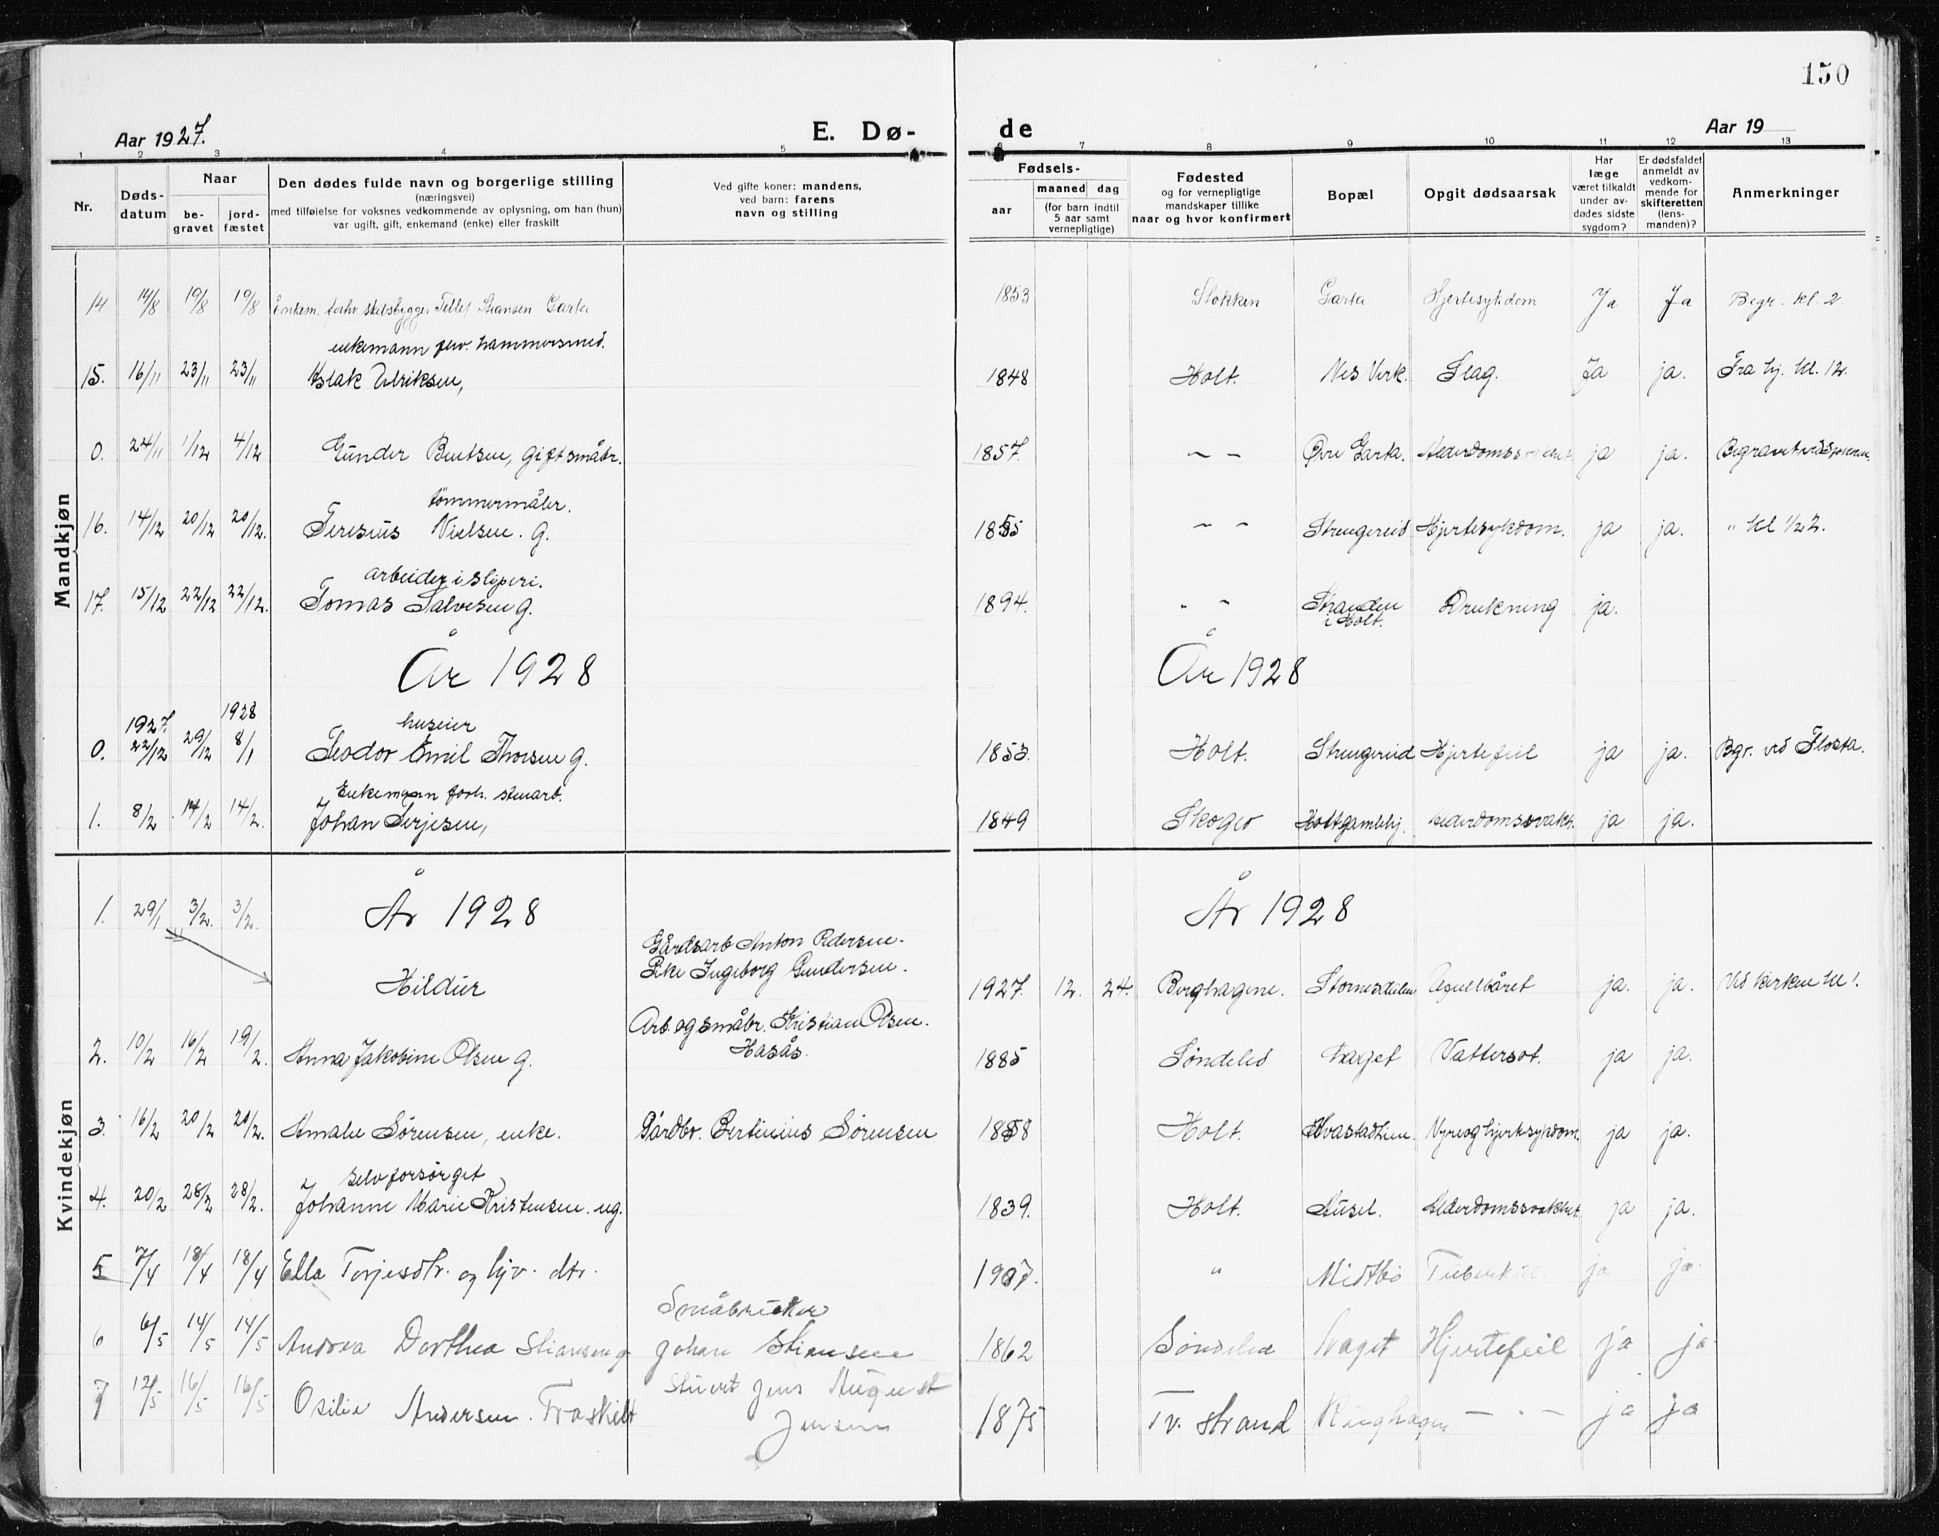 150
Aar 1927.
E. Dø-
de
Aar 19
1 2 3 4 5
6 7 8 9 10 11 12 13
Nr.
Døds-
datum
Naar
be-
gravet
jord-
fæstet
Den dødes fulde navn og borgerlige stilling
(næringsvei)
med tilføielse for voksnes vedkommende av oplysning, om han (hun)
var ugift, gift, enkemand (enke) eller fraskilt
Ved gifte koner: mandens,
ved barn: farens
navn og stilling
Fødsels-
aar
maaned
dag
(for barn indtil
5 aar samt
vernepligtige)
Fødested
og for vernepligtige
mandskaper tillike
naar og hvor konfirmert
Bopæl
Opgit dødsaarsak
Har
læge
været tilkaldt
under av-
dødes sidste
sygdom?
Er dødsfaldet
anmeldt av
vedkom-
mende for
skifteretten
(lens-
manden)?
Anmerkninger
Mandkjøn
14 14/8 19/8 19/8 Enkem. forhv. skibsbygger Tellef Stiansen Garta 1853 Stokken Garta Hjertesykdom Ja Ja Begr. kl. 2
enkemann forv. hammersmed.
15. 16/11 23/11 23/11 Aslak Ulriksen, 1848 Holt. Nes Verk. Slag. Ja ja. Fra hj. kl. 12.
0. 24/11 1/12 4/12 Gunder Bentsen, gift småbr. 1857. — — Øvre Garta. Alderdomssvakhet ja ja. Begravet ved
tømmermåler.
16. 14/12 20/12 20/12. Teresius Nielsen. g. 1855 — — Strengereid Hjertesykdom. ja ja. " kl 1/2 2.
arbeider i sliperi.
17. 15/12 22/12 22/12. Tomas Salvesen g. 1894. " " Stranden Drukning ja.
i Holt.
År 1928
År 1928
1927. 1928
huseier
0. 22/12 29/12 8/1 Teodor Emil Thorsen g. 1853. Holt. Strengereid Hjertefeil ja ja. Bgr. ved Flosta.
Enkemann forh. stenarb.
1. 8/2 14/2 14/2. Johan Terjesen, 1849 Skoger Holt gamlehj. Alderdomssvakh. ja ja.
Kvindekjøn
1. 29/1 3/2. 3/2. År 1928
År 1928
Gårdsarb Anton Pedersen.
Pike Ingeborg Gundersen.
Hildur 1927. 12. 24. Berghagene. Uopklåret ja. ja. Ved kirken kl 1.
Arb. og småbr. Kristian Olsen.
Hasås.
2. 10/2 16/2 19/2. Anna Jakobine Olsen g. 1885 Søndeled Vattersot. ja ja.
3. 16/2 20/2 20/2. Amalie Sørensen, enke. Gårdbr. Bertinius Sørensen 1858 Holt. Nyre og hjertesykdom. ja ja.
selvforsørget
4. 20/2 28/2 28/2. Johanne Marie Kristensen. ug. 1839. Holt. Ausel. Alderdomssvakhet ja ja.
5 7/4 18/4 18/4 Ella Torjesdtr. og hjv. dtr. 1907. " Midtbø Tuberkul. ja ja.
Småbruker
6 6/5 14/5 14/5 Andrea Dorthea Stiansen g Johan Stiansen 1862 Søndeled Hjertefeil ja ja
7 12/5 16/5 16/5 Osilie Andersen. Fraskilt Stuert Jens August
Jensen
1875 Tv. strand — " — ja ja